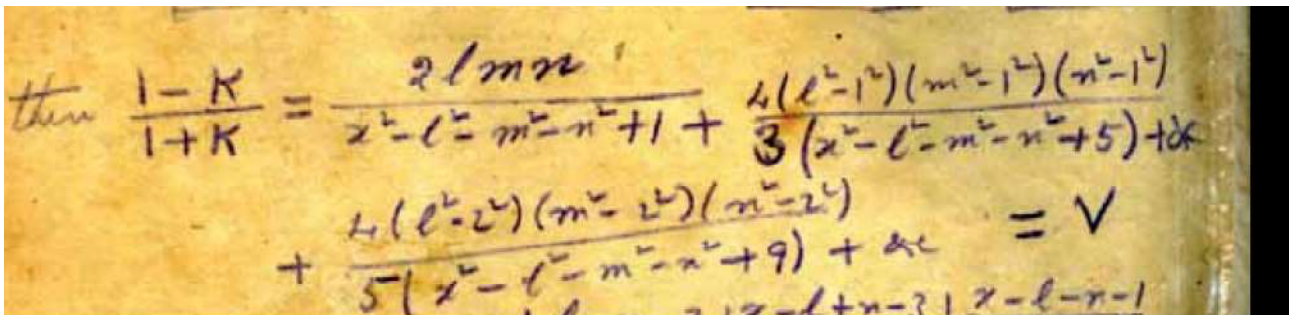 then (1-K)/(1+K) = 2lmn/(x²-l²-m²-n²+1) + 4(l²-1²)(m²-1²)(n²-1²)/3(x²-l²-m²-n²+5) +&c
+ 4(l²-2²)(m²-2²)(n²-2²)/5(x²-l²-m²-n²+9) + &c = V
x-l-n-1